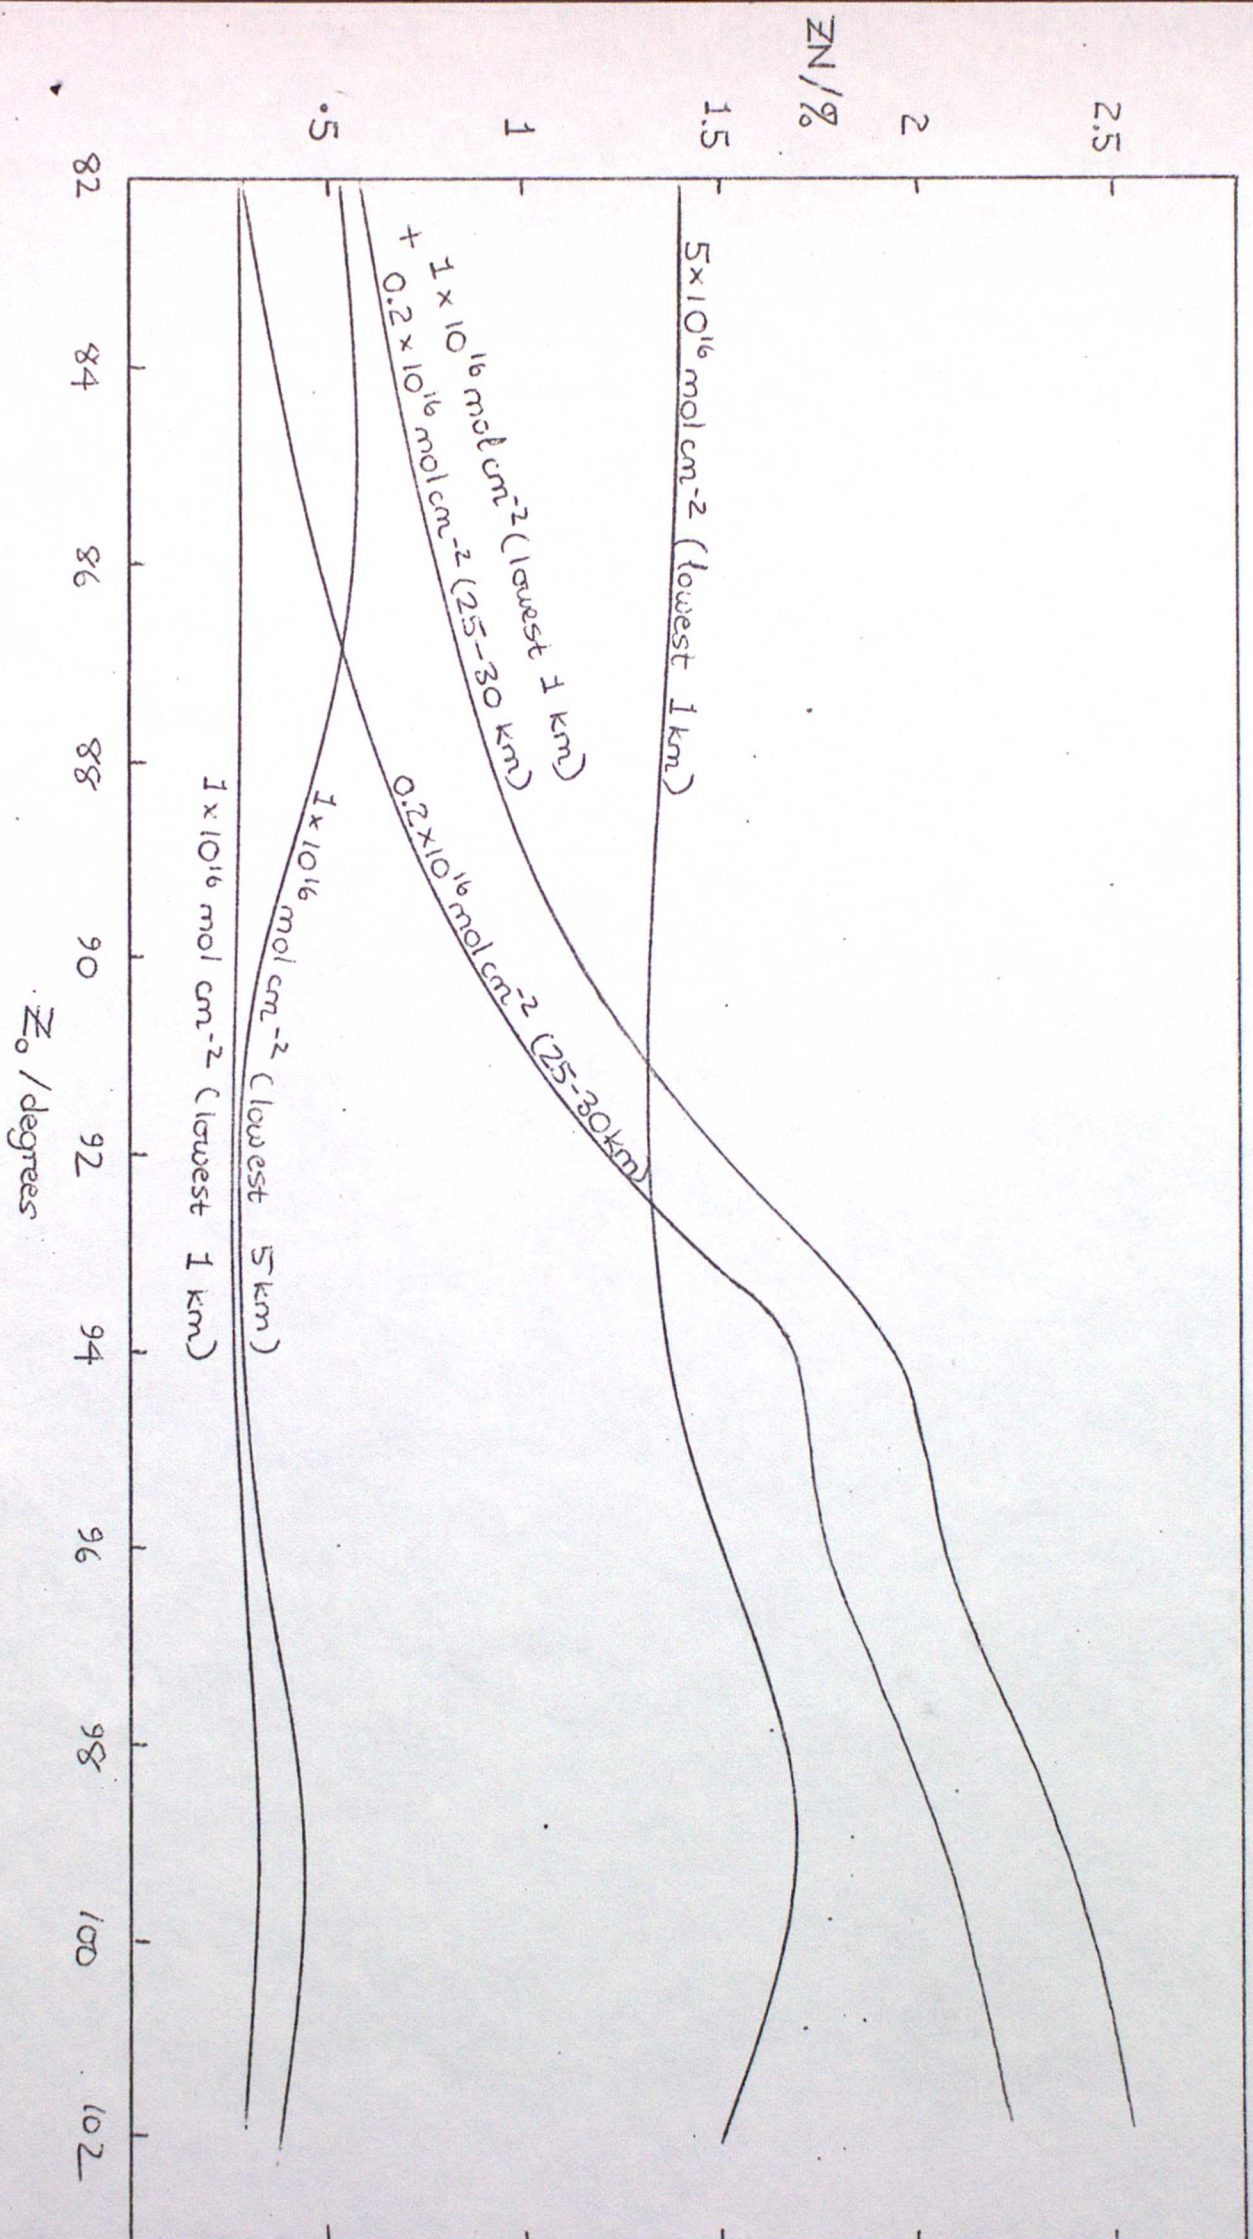 ZN/%
2.5
2
1.5
1
.5
5×10¹⁶ mol cm⁻² (lowest 1 km)
1 × 10¹⁶ mol cm⁻² (lowest 1 km)
+ 0.2 × 10¹⁶ mol cm⁻² (25-30 km)
0.2×10¹⁶ mol cm⁻² (25-30 km)
1 × 10¹⁶ mol cm⁻² (lowest 5 km)
1 × 10¹⁶ mol cm⁻² (lowest 1 km)
82 84 86 88 90 92 94 96 98 100 102
Z₀ / degrees